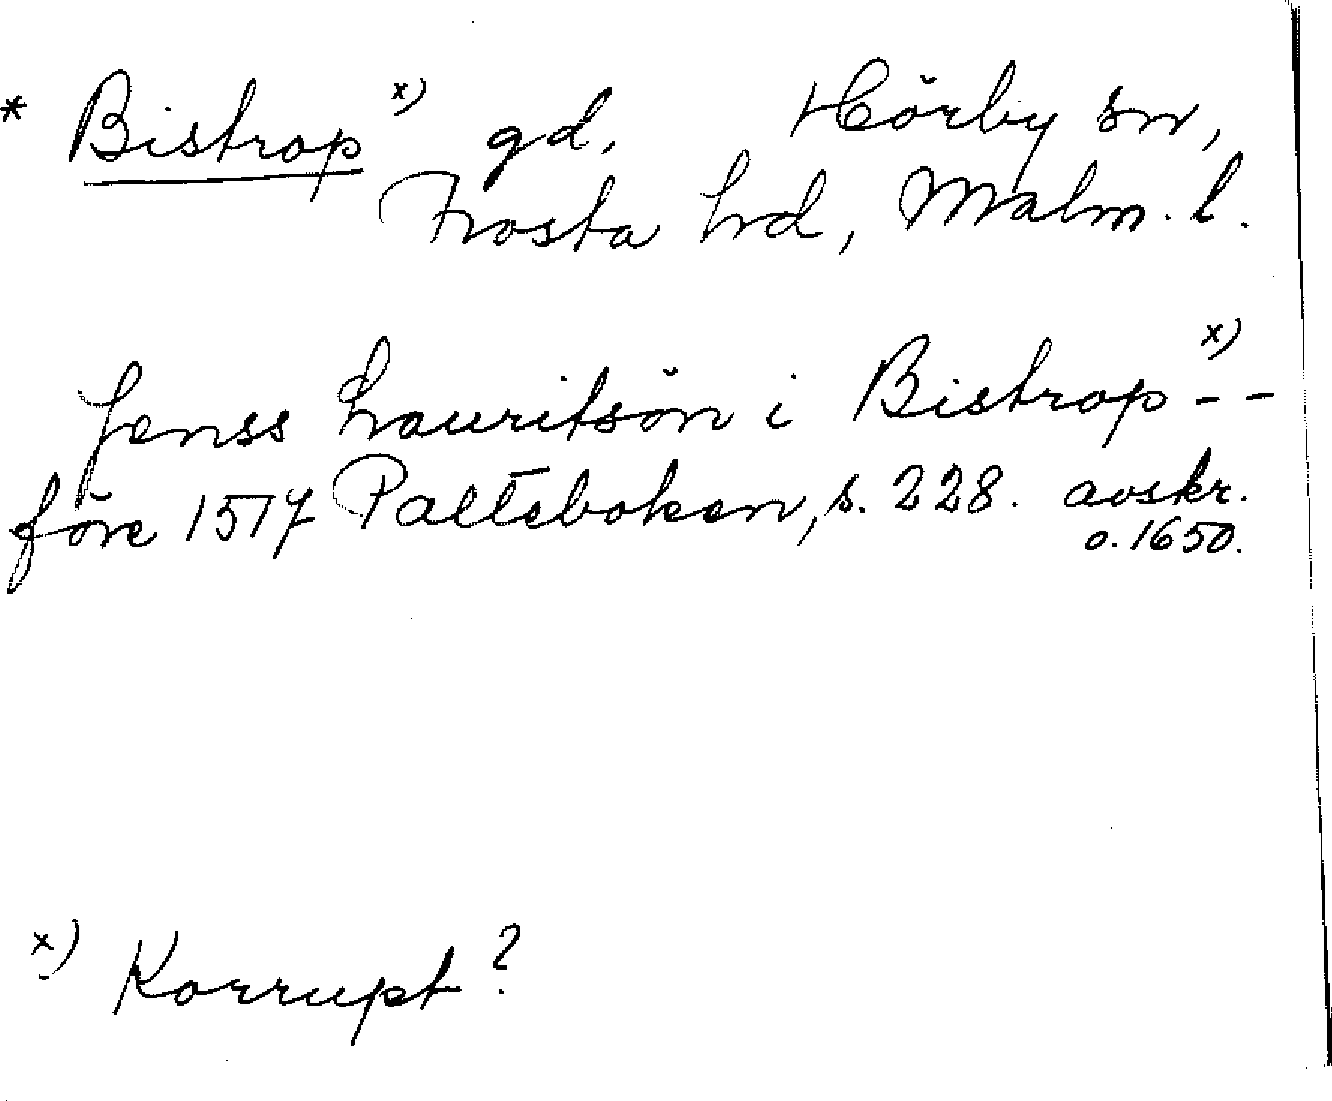 * Bistrop x) gd, Hörby sn,
Frosta hd, Malm. l.
Jenss Lauritsön i Bistrop x) --
före 1517 Paltebokên, s. 228. avskr.
o. 1650.
x) Korrupt?